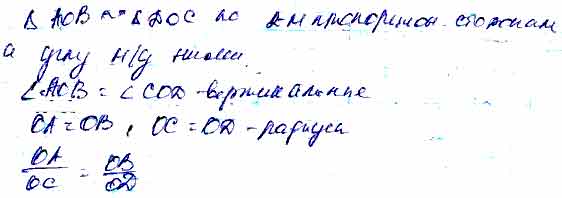 Δ AOB ~ Δ DOC по 2м пропорцион. сторонам
и углу м/д ними.
∠AOB = ∠COD - вертикальные
OA = OB, OC = OD - радиусы
OA/OC = OB/OD